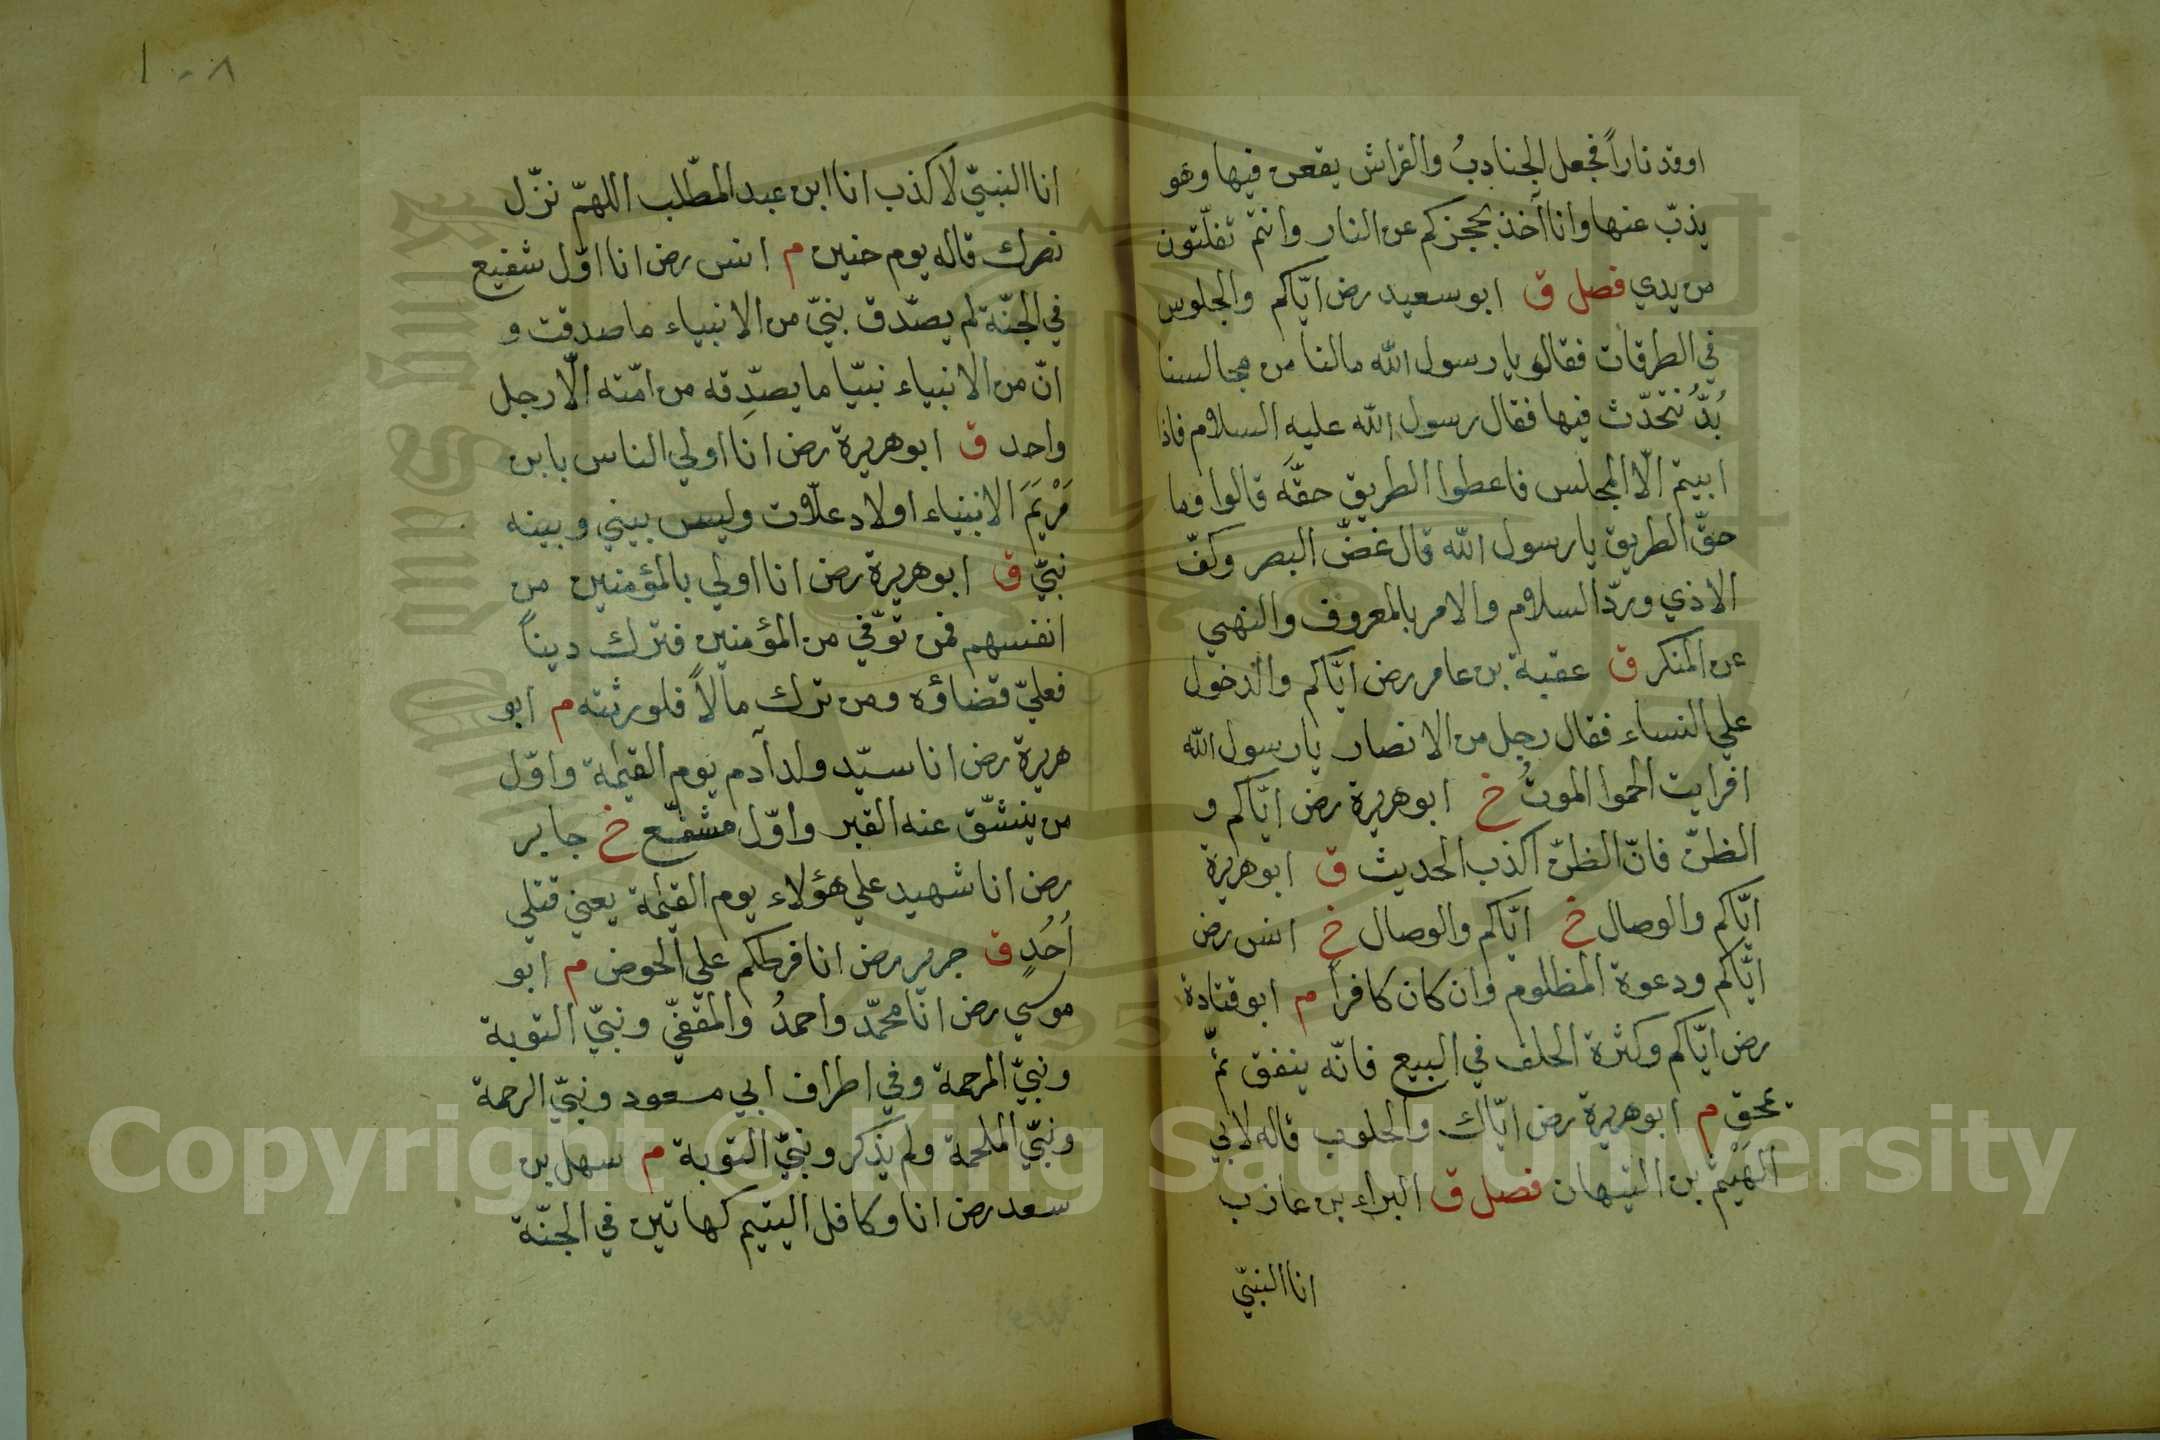 اوقد ناراً فجعل الجنادبُ والفراش يقعن فيها وهو
يذبّ عنها وانا آخذ بحجزكم عن النار وانتم تفلّتون
من يدي فصل ق ابو سعيد رض ايّاكم والجلوس
في الطرقات فقالو يا رسول الله مالنا من مجالسنا
بُدٌّ نتحدّث فيها فقال رسول الله عليه السلام فاذا
ابيتم الّا المجلس فاعطوا الطريق حقَّه قالوا وما
حقّ الطريق يا رسول الله قال غضّ البصر وكفّ
الاذي وردّ السلام والامر بالمعروف والنهي
عن المنكر ق عقبة بن عامر رض ايّاكم والدخول
علي النساء فقال رجل من الانصار يا رسول الله
افرايت الحموا الموتُ خ ابو هريرة رض ايّاكم و
الظنّ فانّ الظنّ اكذب الحديث ق ابو هريرة
ايّاكم والوصال خ ايّاكم والوصال خ انس رض
ايّاكم ودعوة المظلوم وان كان كافراً م ابو قتادة
رض ايّاكم وكثرة الحلف في البيع فانّه ينفق ثمّ
يمحق م ابو هريرة رض ايّاك والحلوب قاله لابي
الهَيْثم بن التيهان فصل ق البراء بن عازب
انا النبيّ
١٠٨
انا النبيّ لا كذب انا ابن عبد المطّلب اللهمّ نزّل
نصرك قاله يوم حنين م انس رض انا اوّل شفيع
في الجنّة لم يصدّق نبيّ من الانبياء ما صدقت و
انّ من الانبياء نبيّا ما يصدِّقه من امّته الّا رجل
واحد ق ابو هريرة رض انا اولي الناس بابن
مَرْيَمَ الانبياء اولاد علّات وليس بيني وبينه
نبيّ ق ابو هريرة رض انا اولي بالمؤمنين من
انفسهم فمن توّفي من المؤمنين فترك ديناً
فعليّ قضاؤه ومن ترك مالاً فلورثته م ابو
هريرة رض انا سيّد ولد آدم يوم القيمة واوّل
من ينشّق عنه القبر واوّل مشفّع خ جابر
رض انا شهيد علي هؤلاء يوم القيمة يعني قتلي
اُحُدٍ ق جرير رض انا فرطكم علي الحوض م ابو
موسي رض انا محمّد واحمدُ والمقفّي ونبيّ التوبة
ونبيّ المرحمة وفي اطراف ابي مسعود ونبيّ الرحمة
ونبيّ الملحمة ولم يذكر ونبيّ التوبة م سهل بن
سعد رض انا وكافل اليتيم كهاتين في الجنّة
Copyright © King Saud University
King Saud University
1957